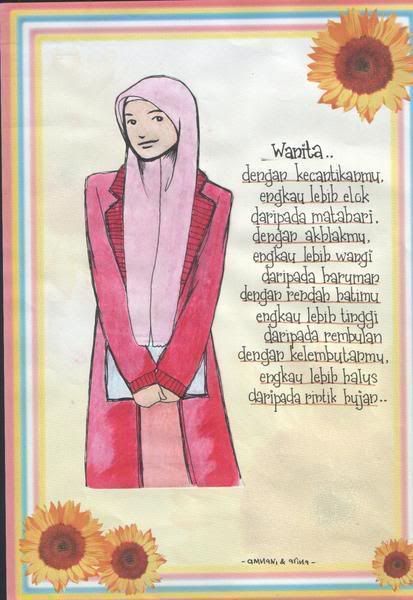 Wanita..
dengan kecantikanmu,
engkau lebih elok
daripada matahari.
dengan akhlakmu,
engkau lebih wangi
daripada haruman
dengan rendah hatimu
engkau lebih tinggi
daripada rembulan
dengan kelembutanmu,
engkau lebih halus
daripada rintik hujan..
- amnani & arina -